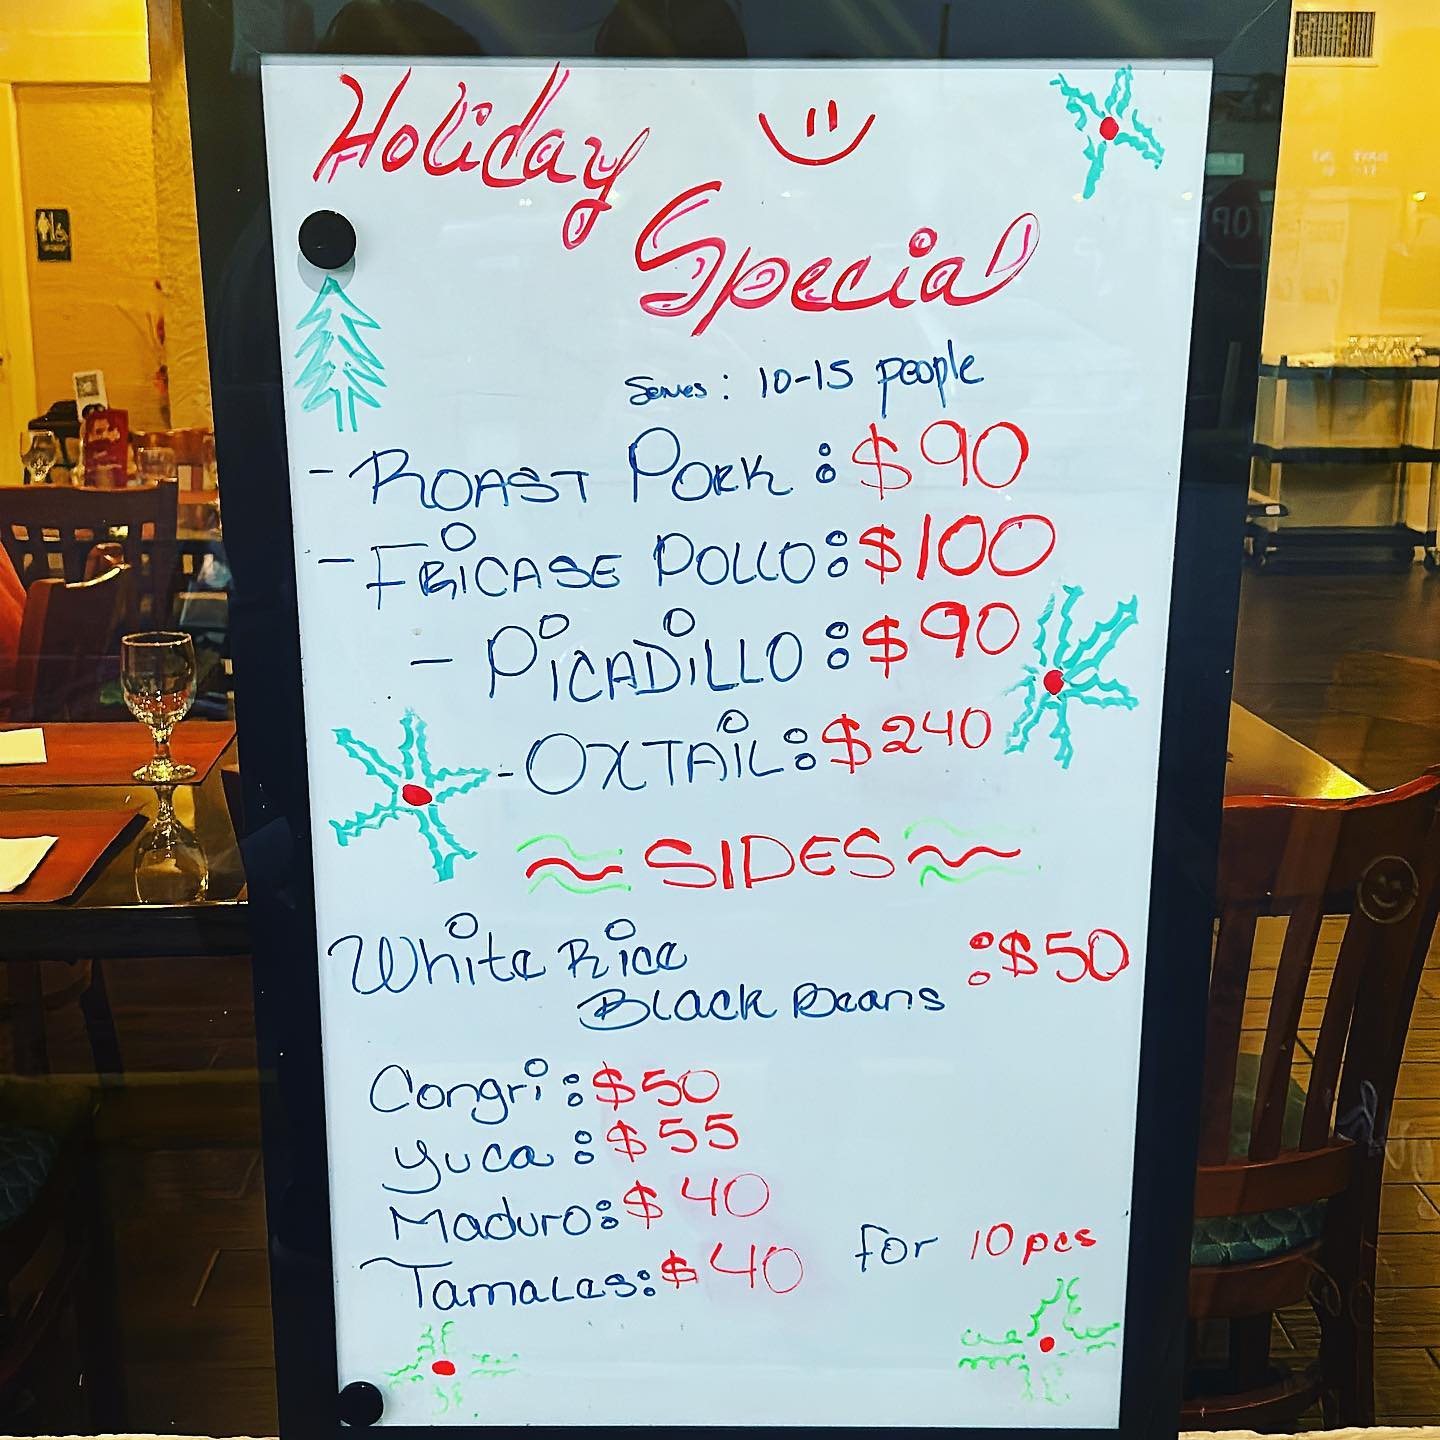 Holiday
Special
Serves: 10-15 people
- ROAST PORK: $90
- FRICASE POLLO: $100
- PiCADiLLO: $90
- OXTAiL: $240
SIDES
White Rice
Black Beans : $50
Congri: $50
Yuca: $55
Maduro: $40
Tamales: $40 for 10pcs